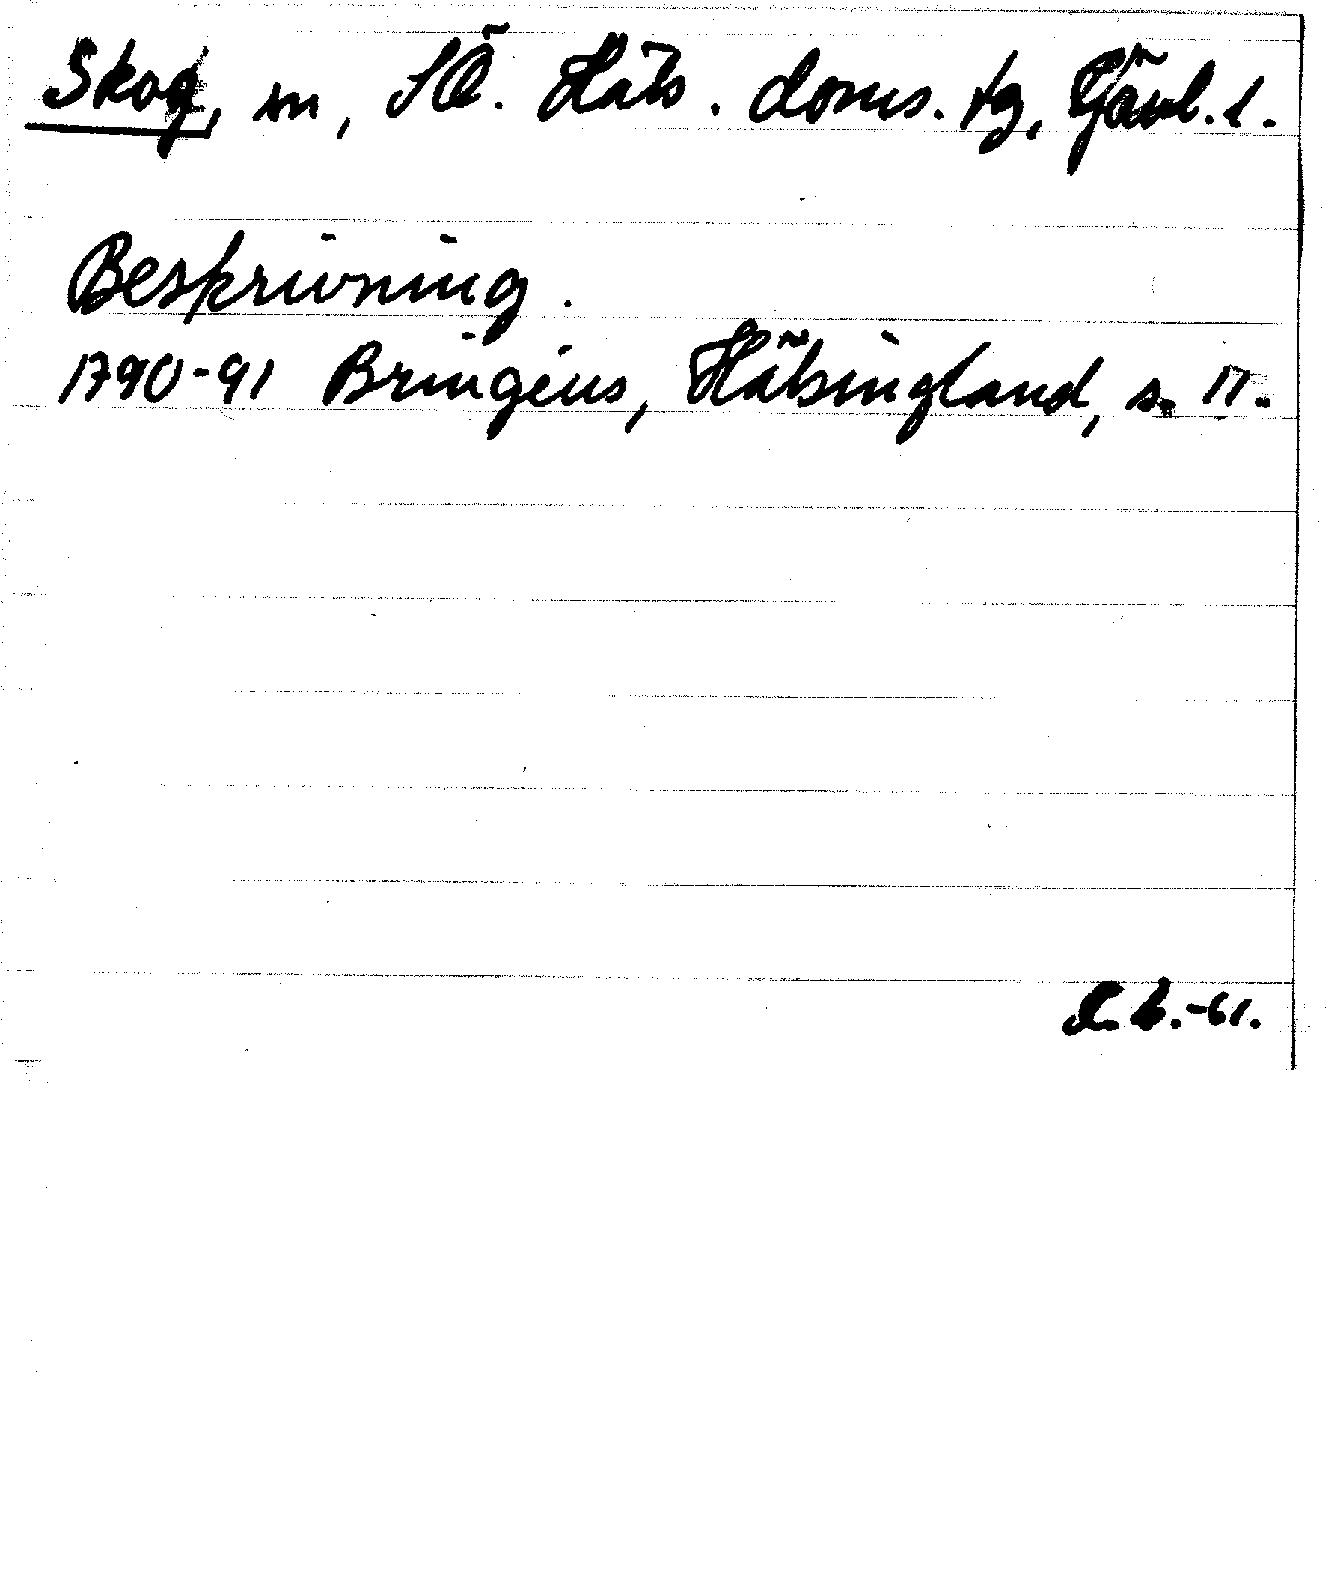 Skog, sn, SÖ. Häls. doms. tg, Gävl. l.
Beskrivning.
1790-91 Bringéus, Hälsingland, s. 17.
-61.